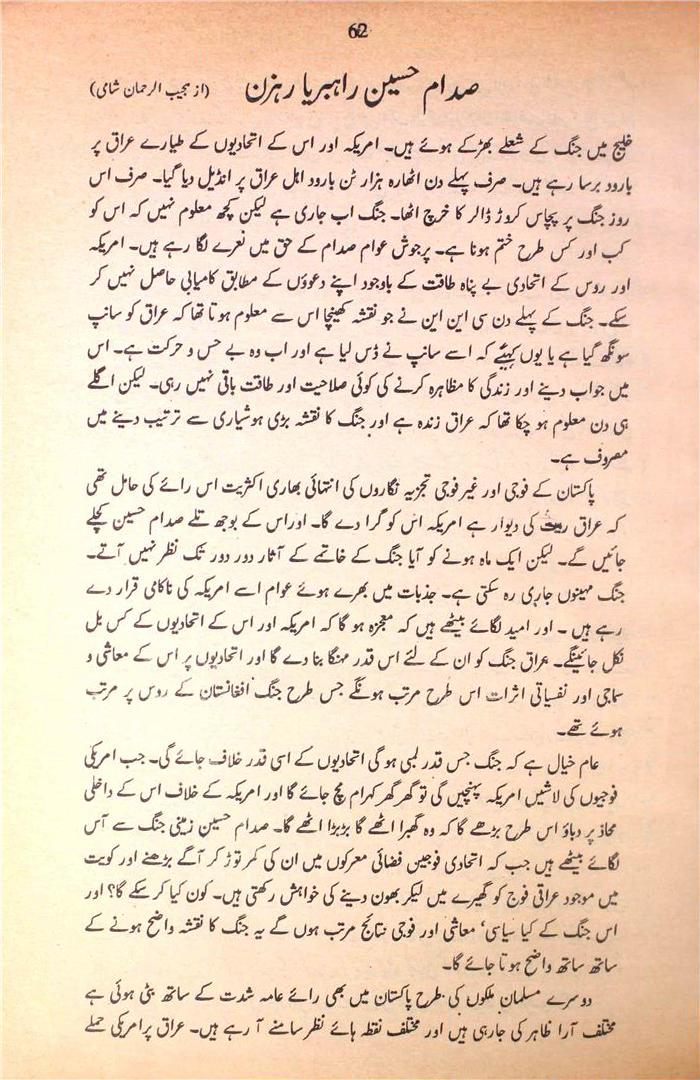 62
صدام حسین راہبر یا رہزن (از مجیب الرحمان شامی)
خلیج میں جنگ کے شعلے بھڑکے ہوئے ہیں۔ امریکہ اور اس کے اتحادیوں کے طیارے عراق پر
بارود برسا رہے ہیں۔ صرف پہلے دن اٹھارہ ہزار ٹن بارود اہل عراق پر انڈیل دیا گیا۔ صرف اس
روز جنگ پر پچاس کروڑ ڈالر کا خرچ اٹھا۔ جنگ اب جاری ہے لیکن کچھ معلوم نہیں کہ اس کو
کب اور کس طرح ختم ہونا ہے۔ پرجوش عوام صدام کے حق میں نعرے لگا رہے ہیں۔ امریکہ
اور روس کے اتحادی بے پناہ طاقت کے باوجود اپنے دعوؤں کے مطابق کامیابی حاصل نہیں کر
سکے۔ جنگ کے پہلے دن سی این این نے جو نقشہ کھینچا اس سے معلوم ہوتا تھا کہ عراق کو سانپ
سونگھ گیا ہے یا یوں کہیئے کہ اسے سانپ نے ڈس لیا ہے اور اب وہ بے حس و حرکت ہے۔ اس
میں جواب دینے اور زندگی کا مظاہرہ کرنے کی کوئی صلاحیت اور طاقت باقی نہیں رہی۔ لیکن اگلے
ہی دن معلوم ہو چکا تھا کہ عراق زندہ ہے اور جنگ کا نقشہ بڑی ہوشیاری سے ترتیب دینے میں
مصروف ہے۔
پاکستان کے فوجی اور غیر فوجی تجزیہ نگاروں کی انتہائی بھاری اکثریت اس رائے کی حامل تھی
کہ عراق ریت کی دیوار ہے امریکہ اس کو گرا دے گا۔ اور اس کے بوجھ تلے صدام حسین کچلے
جائیں گے۔ لیکن ایک ماہ ہونے کو آیا جنگ کے خاتمے کے آثار دور دور تک نظر نہیں آتے۔
جنگ مہینوں جاری رہ سکتی ہے۔ جذبات میں بھرے ہوئے عوام اسے امریکہ کی ناکامی قرار دے
رہے ہیں ۔ اور امید لگائے بیٹھے ہیں کہ معجزہ ہو گا کہ امریکہ اور اس کے اتحادیوں کے کس بل
نکل جائینگے۔ عراق جنگ کو ان کے لئے اس قدر مہنگا بنا دے گا اور اتحادیوں پر اس کے معاشی و
سماجی اور نفسیاتی اثرات اس طرح مرتب ہونگے جس طرح جنگ افغانستان کے روس پر مرتب
ہوئے تھے۔
عام خیال ہے کہ جنگ جس قدر لمبی ہو گی اتحادیوں کے اسی قدر خلاف جائے گی۔ جب امریکی
فوجیوں کی لاشیں امریکہ پہنچیں گی تو گھر گھر کہرام مچ جائے گا اور امریکہ کے خلاف اس کے داخلی
محاذ پر دباؤ اس طرح بڑھے گا کہ وہ گھبرا اٹھے گا بڑبڑا اٹھے گا۔ صدام حسین زمینی جنگ سے آس
لگائے بیٹھے ہیں جب کہ اتحادی فوجیں فضائی معرکوں میں ان کی کمر توڑ کر آگے بڑھنے اور کویت
میں موجود عراقی فوج کو گھیرے میں لیکر بھون دینے کی خواہش رکھتی ہیں۔ کون کیا کر سکے گا؟ اور
اس جنگ کے کیا سیاسی، معاشی اور فوجی نتائج مرتب ہوں گے یہ جنگ کا نقشہ واضح ہونے کے
ساتھ ساتھ واضح ہوتا جائے گا۔
دوسرے مسلمان ملکوں کی طرح پاکستان میں بھی رائے عامہ شدت کے ساتھ بٹی ہوئی ہے
مختلف آرا ظاہر کی جا رہی ہیں اور مختلف نقطہ ہائے نظر سامنے آ رہے ہیں۔ عراق پر امریکی حملے